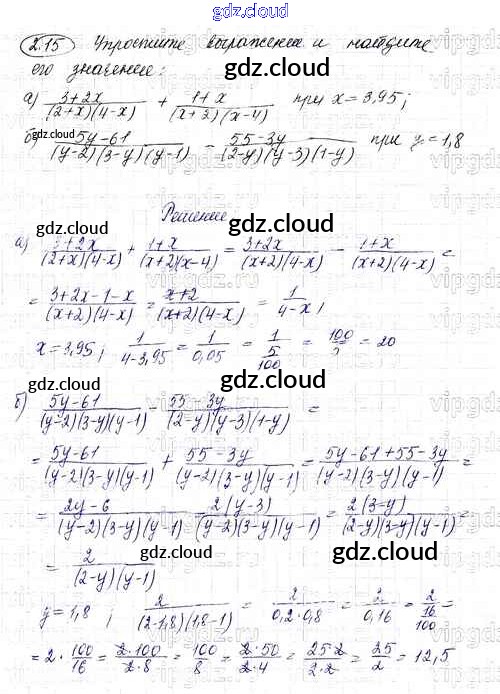 gdz.cloud
2.15 Упростите выражение и найдите
его значение:
gdz.cloud
а) (3+2x)/((2+x)(4-x)) + (1+x)/((x+2)(x-4)) при x = 3,95;
gdz.cloud
б) (5y-61)/((y-2)(3-y)(y-1)) - (55-3y)/((2-y)(y-3)(1-y)) при y = 1,8
gdz.cloud
Решение
gdz.cloud
а) (3+2x)/((2+x)(4-x)) + (1+x)/((x+2)(x-4)) = (3+2x)/((x+2)(4-x)) - (1+x)/((x+2)(4-x)) =
= (3+2x-1-x)/((x+2)(4-x)) = (x+2)/((x+2)(4-x)) = 1/(4-x);
gdz.cloud
x = 3,95; 1/(4-3,95) = 1/0,05 = 1/(5/100) = 100/5 = 20
gdz.cloud gdz.cloud
б) (5y-61)/((y-2)(3-y)(y-1)) - (55-3y)/((2-y)(y-3)(1-y)) =
= (5y-61)/((y-2)(3-y)(y-1)) + (55-3y)/((y-2)(3-y)(y-1)) = (5y-61+55-3y)/((y-2)(3-y)(y-1)) =
gdz.cloud
= (2y-6)/((y-2)(3-y)(y-1)) = 2(y-3)/((y-2)(3-y)(y-1)) = 2(3-y)/((2-y)(3-y)(y-1)) =
= 2/((2-y)(y-1))
gdz.cloud
gdz.cloud
y = 1,8; 2/((2-1,8)(1,8-1)) = 2/(0,2·0,8) = 2/0,16 = 2/(16/100) =
= 2·100/16 = (2·100)/(2·8) = 100/8 = (2·50)/(2·4) = (25·2)/(2·2) = 25/2 = 12,5
gdz.cloud